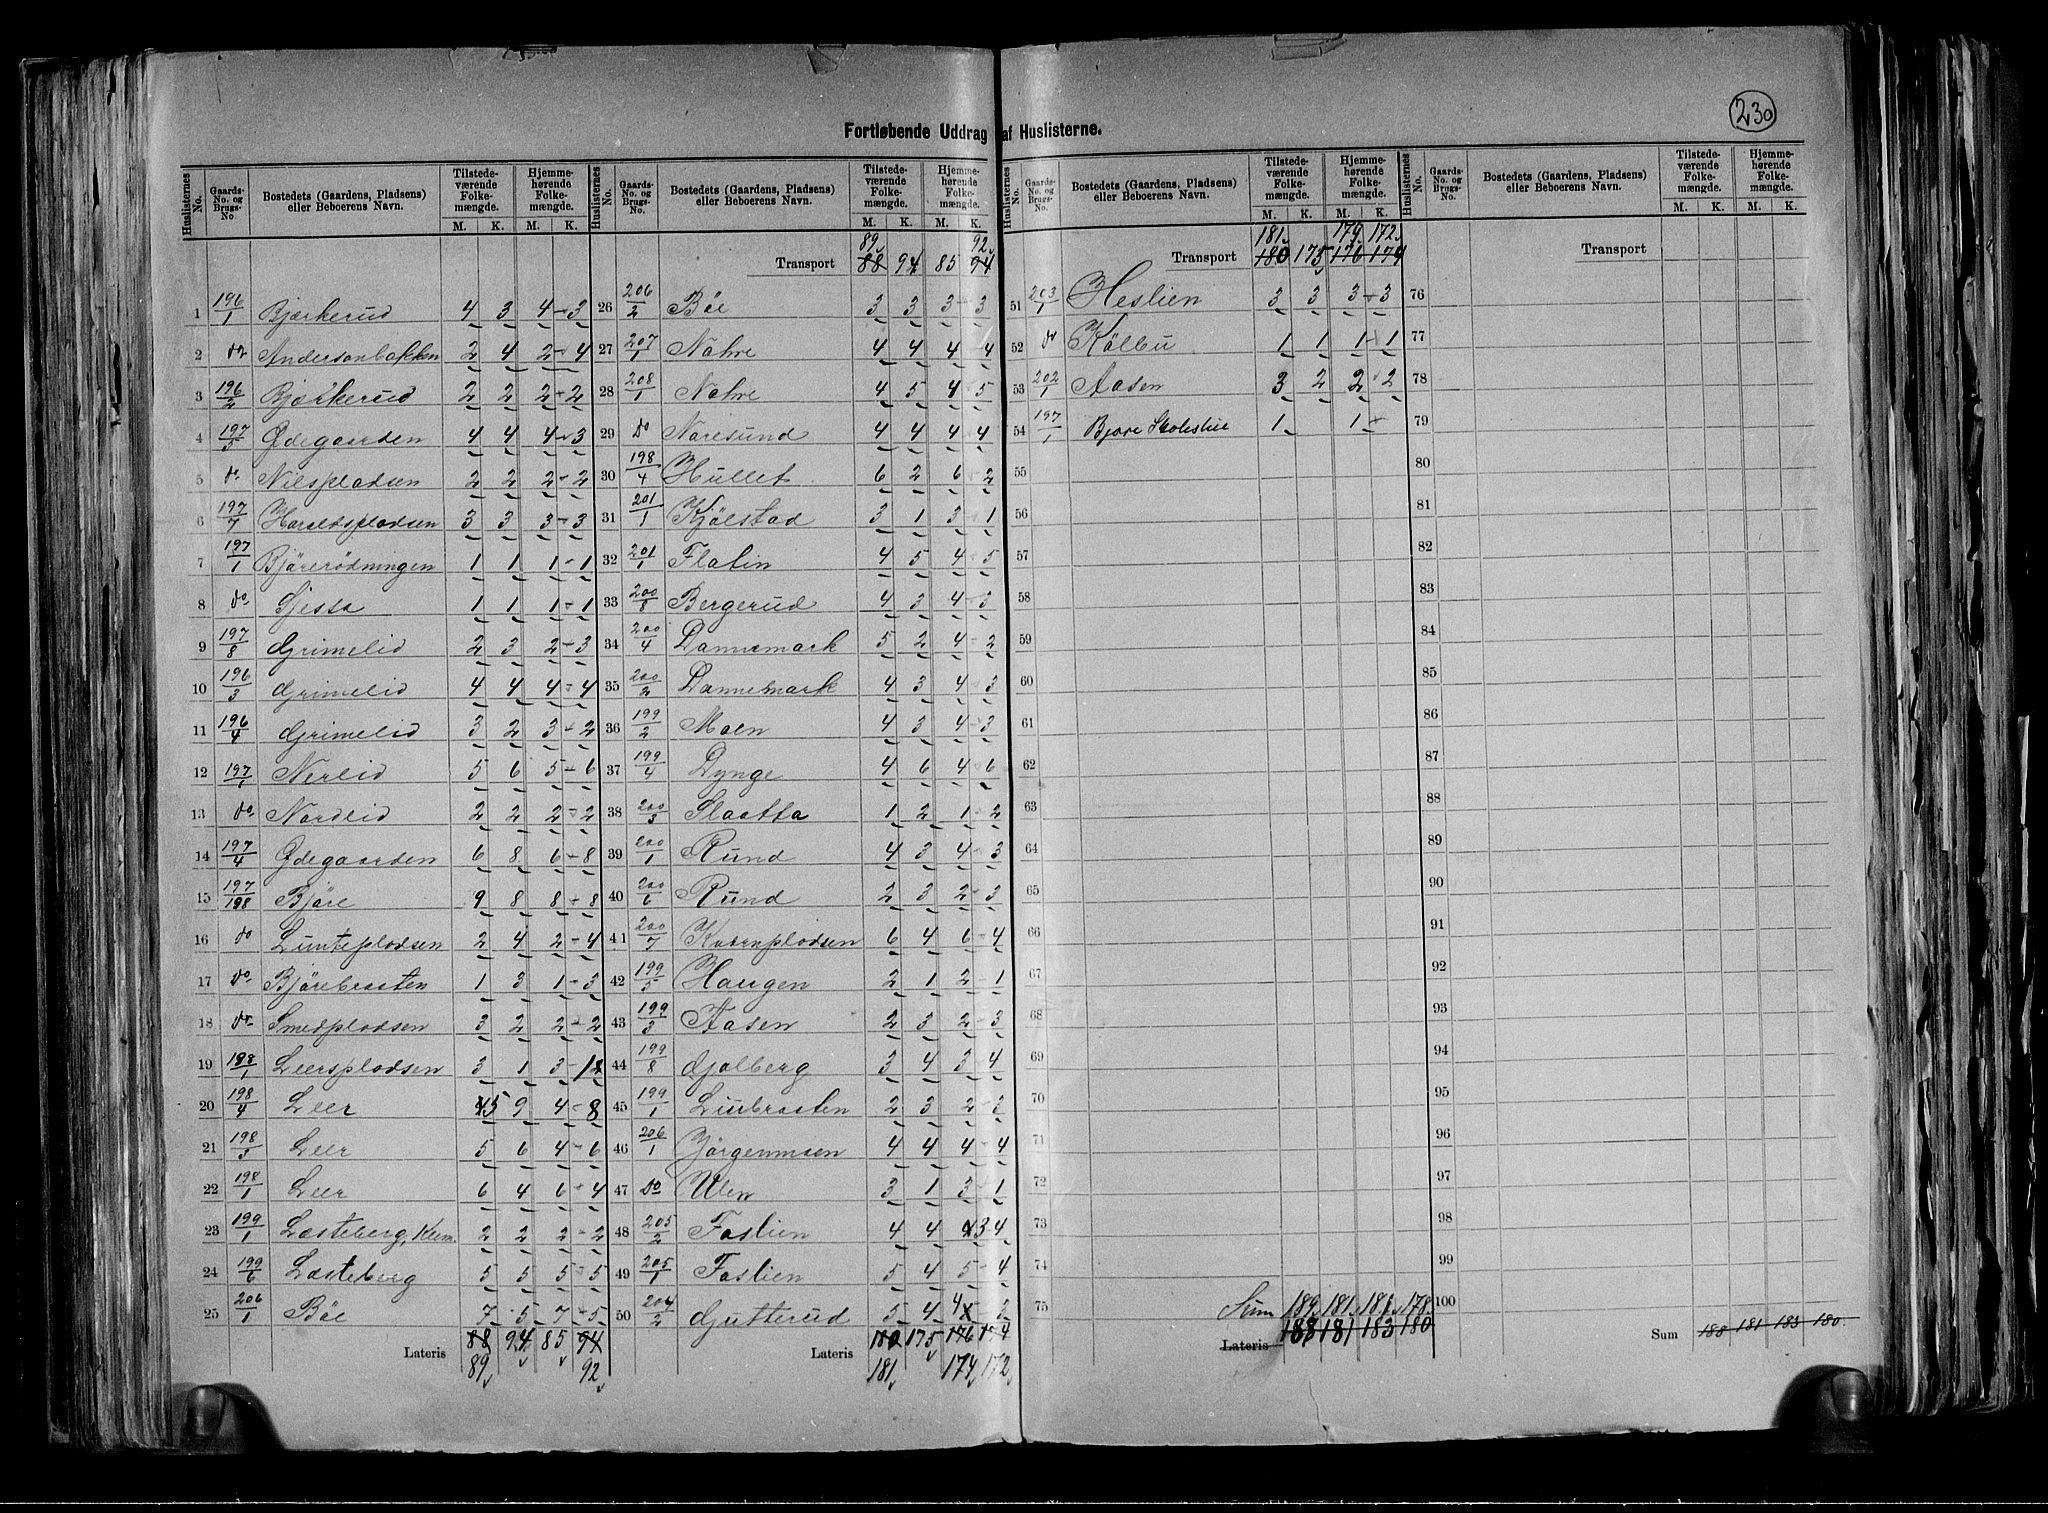 230
Fortløbende Uddrag af Huslisterne.
Huslisternes No. Gaards-No. og Brugs-No. Bostedets (Gaardens, Pladsens) eller Beboerens Navn. Tilstedeværende Folkemængde. M. K. Hjemmehørende Folkemængde. M. K.
1 196/1 Bjærkerud 4 3 4 3
2 do Andersonbakken 2 4 2 4
3 196/2 Bjærkerud 2 2 2 2
4 197/5 Ødegaarden 4 4 4 3
5 do Nilspladsen 2 2 2 2
6 197/7 Haraldspladsen 3 3 3 3
7 197/1 Bjørerødningen 1 1 1 1
8 do Sjesta 1 1 1 1
9 197/8 Grimelid 2 3 2 3
10 196/3 Grimelid 4 4 4 4
11 196/4 Grimelid 3 2 3 2
12 197/1 Nerlid 5 6 5 6
13 do Nordlid 2 2 2 2
14 197/4 Ødegaarden 6 8 6 8
15 197/198 Björe 9 8 8 8
16 do Lunteplodsen 2 4 2 4
17 do Björebraaten 1 3 1 3
18 do Smedplodsen 3 2 2 2
19 198/1 Leersplodsen 3 1 3 1
20 198/4 Leer 5 9 4 8
21 198/3 Leer 5 6 4 6
22 198/1 Leer 6 4 6 4
23 199/1 Læsteberg, Klem. 2 2 2 2
24 199/6 Læsteberg 5 5 5 5
25 206/1 Böe 7 5 7 5
Lateris 88 94 85 94
89 92
Huslisternes No. Gaards-No. og Brugs-No. Bostedets (Gaardens, Pladsens) eller Beboerens Navn. Tilstedeværende Folkemængde. M. K. Hjemmehørende Folkemængde. M. K.
89 92
Transport 88 94 85 94
26 206/2 Böe 3 3 3 3
27 207/1 Nahre 4 4 4 4
28 208/1 Nahre 4 5 4 5
29 do Naresund 4 4 4 4
30 198/4 Hullet 6 2 6 2
31 201/1 Kjölstad 3 1 3 1
32 201/1 Flatin 4 5 4 5
33 200/8 Bergerud 4 3 4 3
34 200/4 Dannemark 5 2 4 2
35 200/2 Dannemark 4 3 4 3
36 199/2 Moen 4 3 4 3
37 199/4 Dynge 4 6 4 6
38 200/3 Slaatta 1 2 1 2
39 200/1 Rund 4 3 4 3
40 200/6 Rund 2 3 2 3
41 200/7 Katenplodsen 6 4 6 4
42 199/5 Haugen 2 1 2 1
43 199/3 Aasen 2 3 2 3
44 199/8 Gjalberg 3 4 3 4
45 199/1 Liubraaten 2 3 2 3
46 206/1 Jörgenmoen 4 4 4 4
47 do Ulen 3 1 3 1
48 205/2 Faslien 4 4 3 4
49 205/1 Faslien 5 4 5 4
50 204/2 Gjutterud 5 4 4 2
Lateris 180 175 176 174
181 174 172
Huslisternes No. Gaards-No. og Brugs-No. Bostedets (Gaardens, Pladsens) eller Beboerens Navn. Tilstedeværende Folkemængde. M. K. Hjemmehørende Folkemængde. M. K.
181 179 172
Transport 180 175 176 174
51 203/1 Heslien 3 3 3 3
52 do Kölbu 1 1 1 1
53 202/1 Aasen 3 2 2 2
54 197/1 Bjøre Skolestue 1 1
55
56
57
58
59
60
61
62
63
64
65
66
67
68
69
70
71
72
73
74
75
Sum 189 181 181 178
Lateris 188 181 183 180
Huslisternes No. Gaards-No. og Brugs-No. Bostedets (Gaardens, Pladsens) eller Beboerens Navn. Tilstedeværende Folkemængde. M. K. Hjemmehørende Folkemængde. M. K.
Transport
76
77
78
79
80
81
82
83
84
85
86
87
88
89
90
91
92
93
94
95
96
97
98
99
100
Sum 188 181 183 180